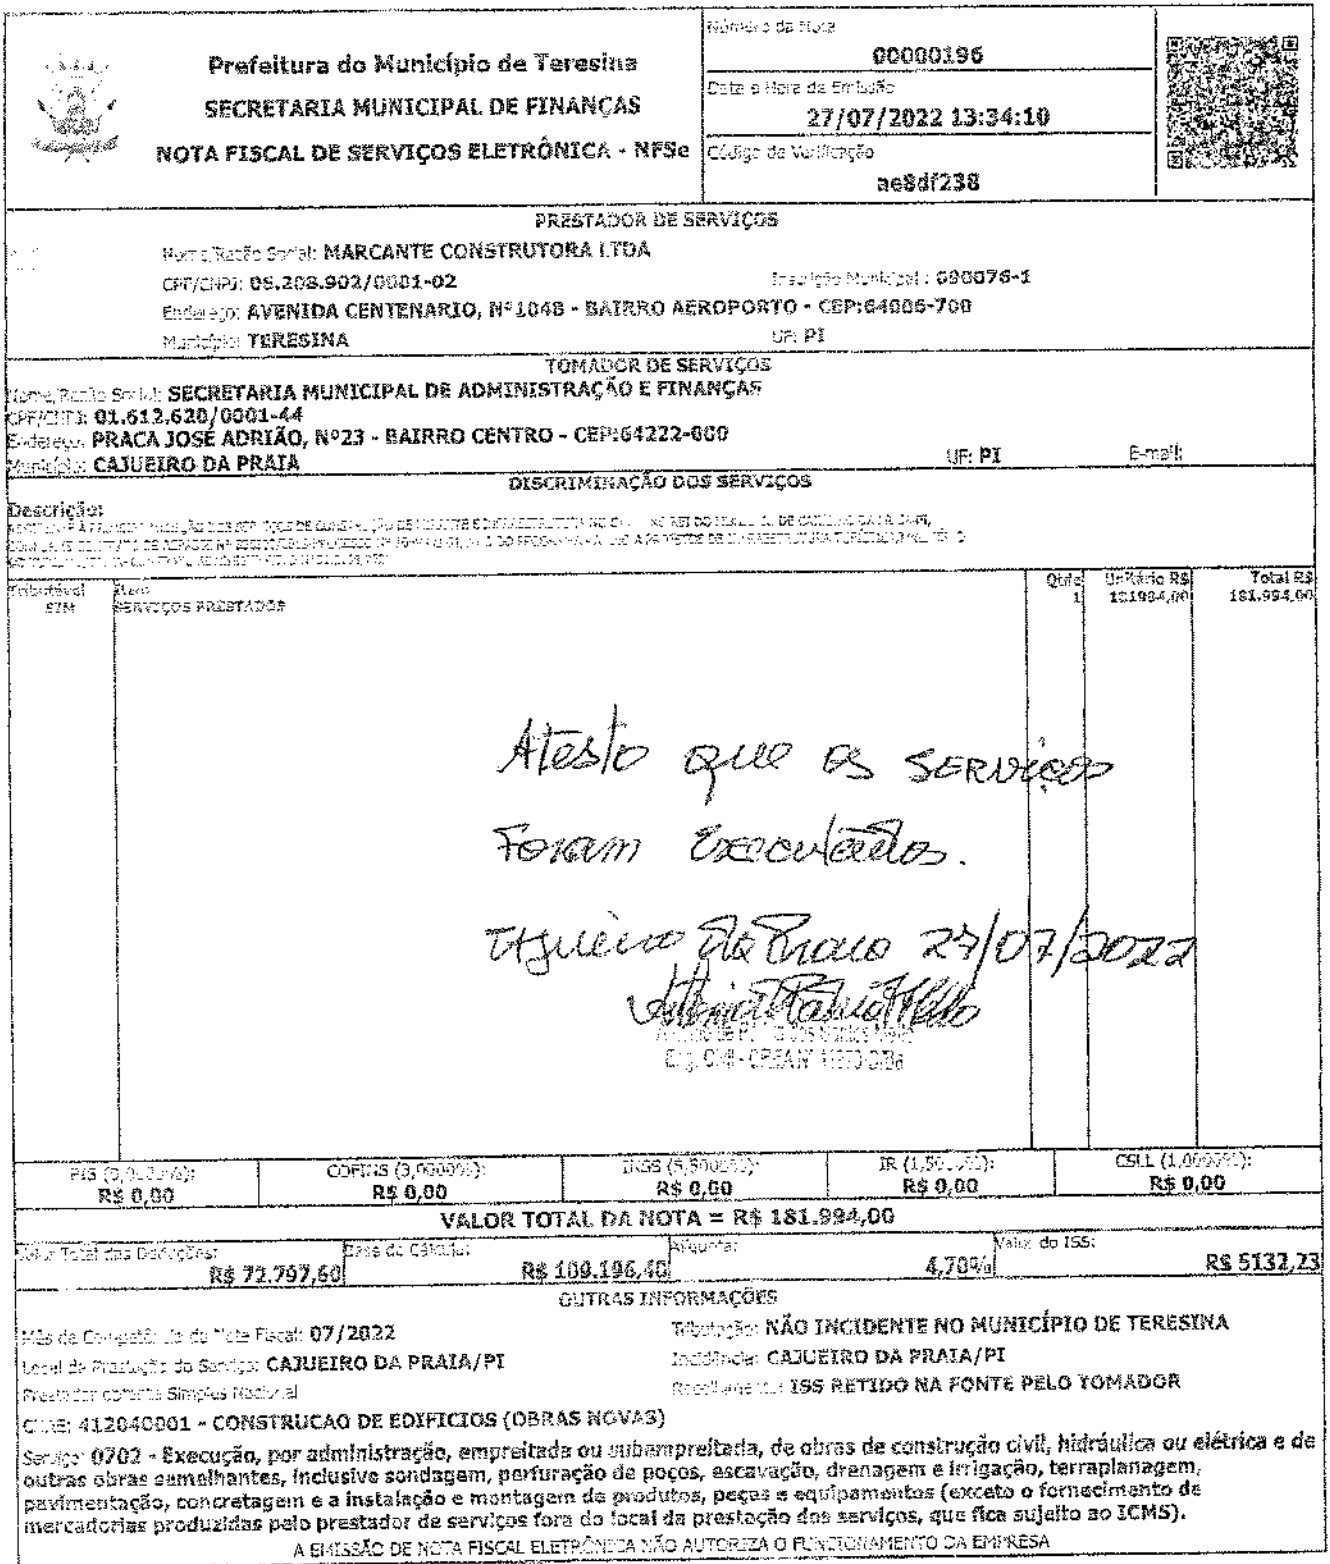 Número da Nota
00000196
Prefeitura do Município de Teresina
SECRETARIA MUNICIPAL DE FINANÇAS
NOTA FISCAL DE SERVIÇOS ELETRÔNICA - NFSe
Data e Hora da Emissão
27/07/2022 13:34:10
Código de Verificação
ae8df238
PRESTADOR DE SERVIÇOS
Nome/Razão Social: MARCANTE CONSTRUTORA LTDA
CPF/CNPJ: 05.208.902/0001-02 Inscrição Municipal: 090076-1
Endereço: AVENIDA CENTENARIO, Nº1048 - BAIRRO AEROPORTO - CEP:64006-700
Município: TERESINA UF: PI
TOMADOR DE SERVIÇOS
Nome/Razão Social: SECRETARIA MUNICIPAL DE ADMINISTRAÇÃO E FINANÇAS
CPF/CNPJ: 01.612.620/0001-44
Endereço: PRACA JOSÉ ADRIÃO, Nº23 - BAIRRO CENTRO - CEP:64222-000
Município: CAJUEIRO DA PRAIA UF: PI E-mail:
DISCRIMINAÇÃO DOS SERVIÇOS
Descrição:
Tributável Item Qtde Unitário R$ Total R$
SIM SERVIÇOS PRESTADOS 1 181994,00 181.994,00
Atesto que os serviços
Foram Executados.
Cajueiro da Praia 27/07/2022
Eng. Civil - CREA Nº
PIS COFINS (3,0000%): INSS IR CSLL (1,0000%):
R$ 0,00 R$ 0,00 R$ 0,00 R$ 0,00 R$ 0,00
VALOR TOTAL DA NOTA = R$ 181.994,00
Valor Total das Deduções: Base de Cálculo: Alíquota: Valor do ISS:
R$ 72.797,60 R$ 109.196,40 4,70% R$ 5132,23
OUTRAS INFORMAÇÕES
Mês de Competência da Nota Fiscal: 07/2022 Tributação: NÃO INCIDENTE NO MUNICÍPIO DE TERESINA
Local da Prestação do Serviço: CAJUEIRO DA PRAIA/PI Incidência: CAJUEIRO DA PRAIA/PI
Prestador optante Simples Nacional Recolhimento: ISS RETIDO NA FONTE PELO TOMADOR
CNAE: 412040001 - CONSTRUCAO DE EDIFICIOS (OBRAS NOVAS)
Serviço: 0702 - Execução, por administração, empreitada ou subempreitada, de obras de construção civil, hidráulica ou elétrica e de
outras obras semelhantes, inclusive sondagem, perfuração de poços, escavação, drenagem e irrigação, terraplanagem,
pavimentação, concretagem e a instalação e montagem de produtos, peças e equipamentos (exceto o fornecimento de
mercadorias produzidas pelo prestador de serviços fora do local da prestação dos serviços, que fica sujeito ao ICMS).
A EMISSÃO DE NOTA FISCAL ELETRÔNICA NÃO AUTORIZA O FUNCIONAMENTO DA EMPRESA